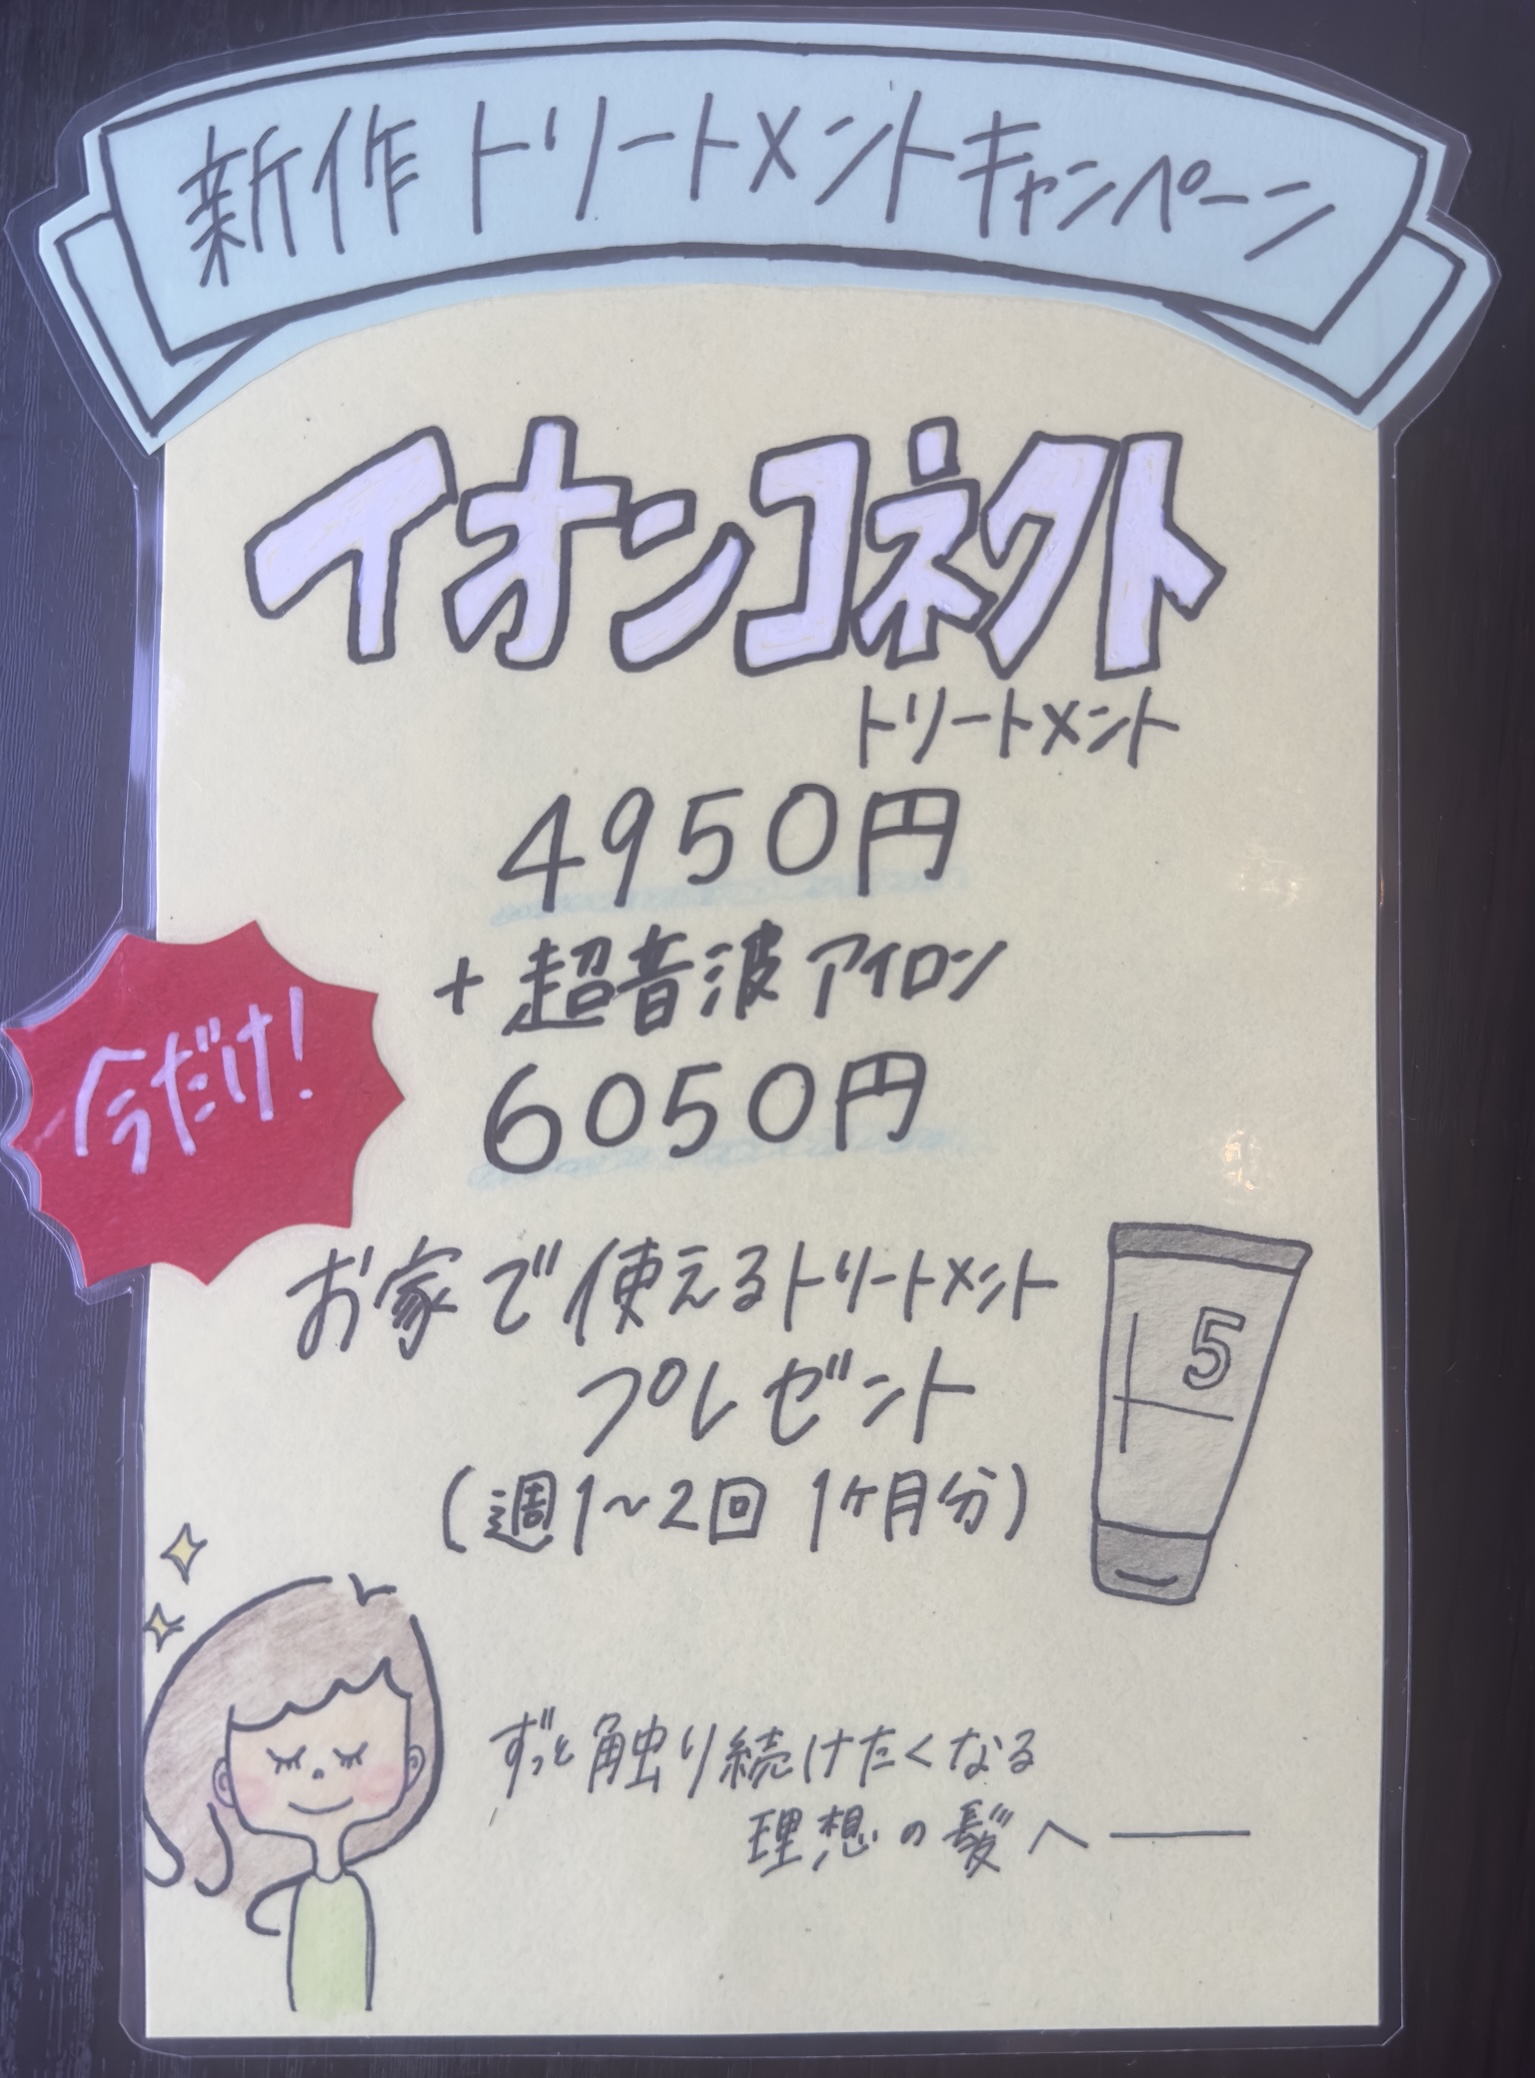 新作トリートメントキャンペーン
イオンコネクト
トリートメント
4950円
+超音波アイロン
6050円
今だけ!
お家で使えるトリートメント
プレゼント
(週1~2回 1ヶ月分)
5
ずっと触り続けたくなる
理想の髪へ——